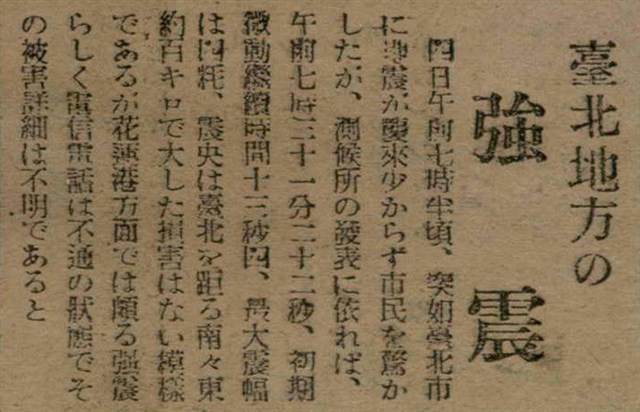 臺北地方の
強震
四日午前七時半頃、突如臺北市
に地震が襲來少からず市民を驚か
したが、測候所の發表に依れば、
午前七時三十一分二十二秒、初期
微動繼續時間十三秒四、最大震幅
は四粍、震央は臺北を距る南々東
約百キロで大した損害はない模樣
であるが花蓮港方面では頗る强震
らしく電信電話は不通の狀態でそ
の被害詳細は不明であると